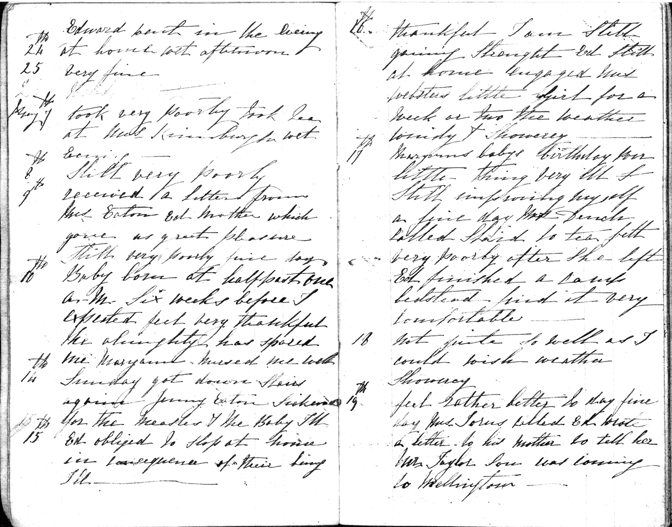 Edward went in the Evening
24th at home wet afternoon
25 very fine
7th took very poorly took Tea
at Mrs Kimburgh wet
Evening
8th Still very poorly
9th received a letter from
Mrs Eaton Ed Mother which
gave us great pleasure
Still very poorly fine day
10th Baby born at half past one
a.m. Six weeks before I
expected feel very thankful
the almighty has spared
me Maryann nursed me well
14th Sunday got down Stairs
again Jenny Eaton Sickened
for the Measles & the Baby Ill
15th Ed obliged to stop at home
in consequence of their being
Ill
16th thankful I am Still
gaining Strenght Ed Still
at home engaged Mrs
Websters little girl for a
Week or two the weather
windy & Showerey
17th Maryanns babys birthday poor
little thing very Ill I
Still improving myself
a fine day Mrs Dench
called Staid to tea felt
very poorly after She left
Ed finished a camp
bedstead find it very
comfortable
18 not quite so well as I
could wish weather
Showerey
19th feel rather better to day fine
day Mrs called Ed wrote
a letter to his Mother to tell her
Mr Taylor Son was coming
to Wellington